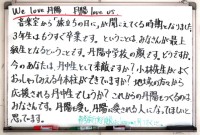 We love 丹陽　丹陽 love us
音楽室から「旅立ちの日に」が聞こえてくる時期になりました。
3年生はもうすぐ卒業です。ということはみなさんが最上
級生となるということです。丹陽中学校の顔です。どうですか。
今のあなたは、丹中生として素敵ですか？小林先生がよく
おっしゃっている
ができていますか？地域の方から
応援される丹中生でしょうか？これからの丹陽をつくるのは
みなさんです。丹陽を愛し、丹陽に愛される人になってほしいと
思っています。